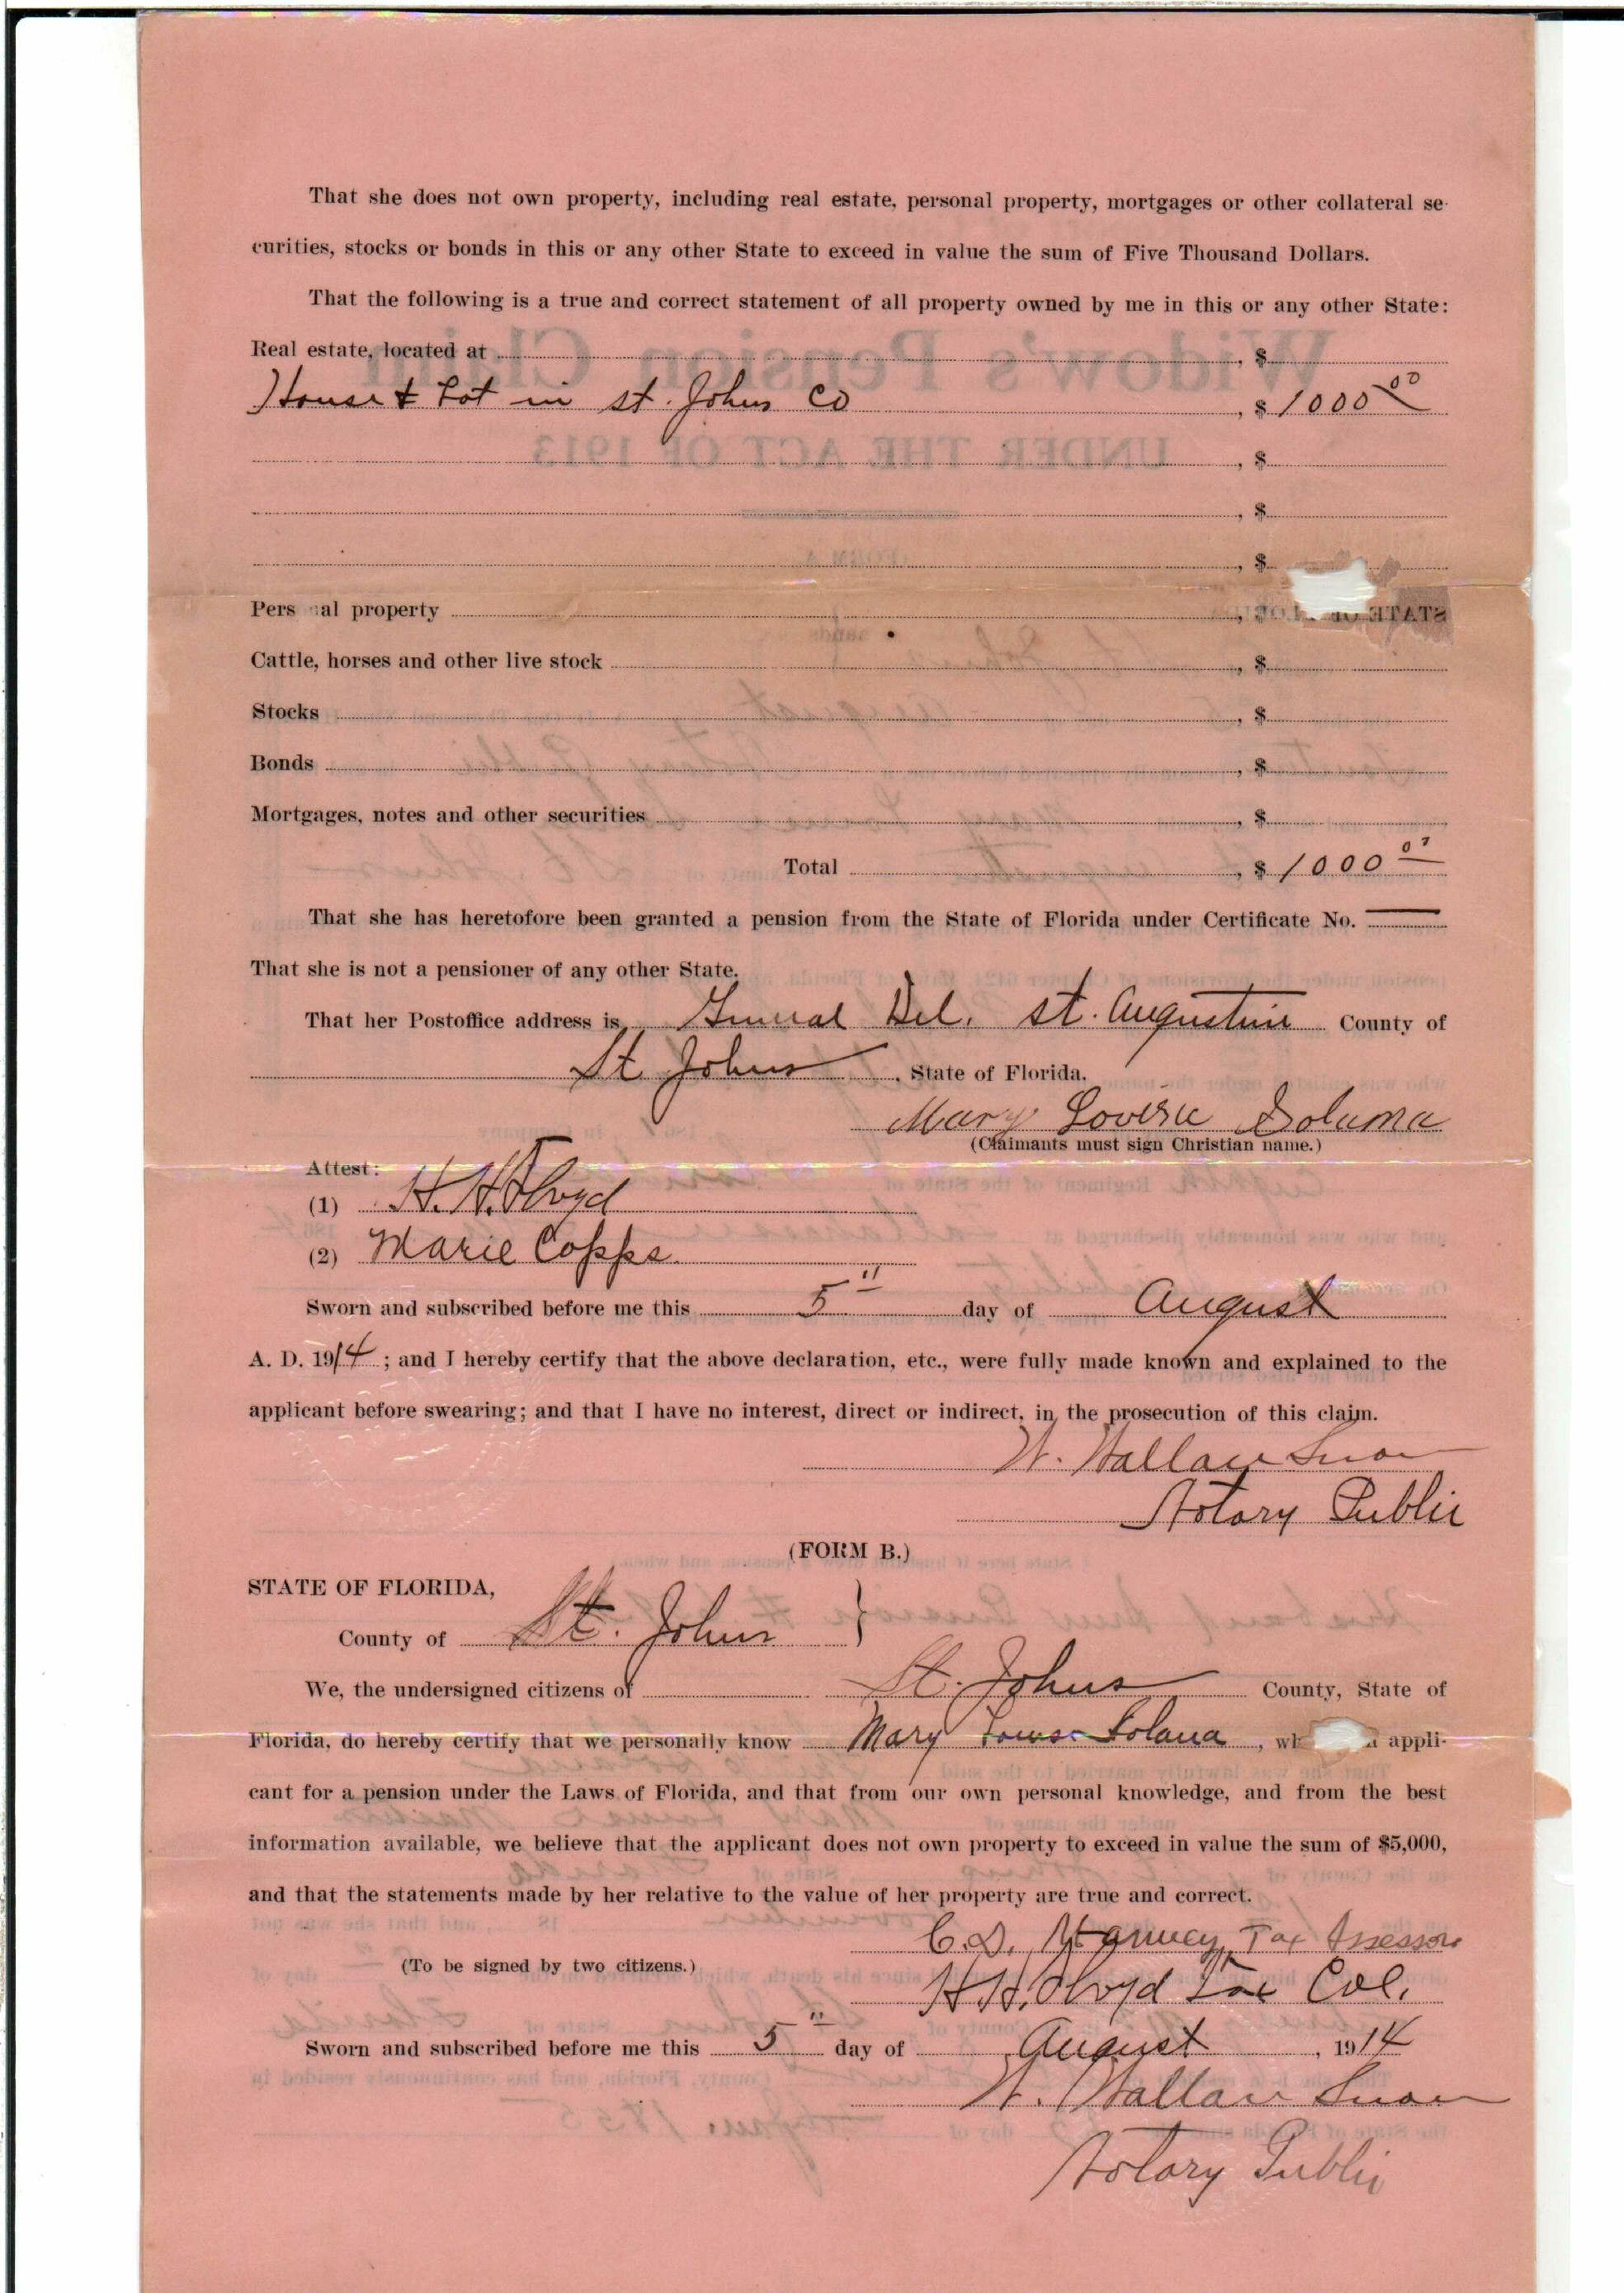 That she does not own property, including real estate, personal property, mortgages or other collateral se-
curities, stocks or bonds in this or any other State to exceed in value the sum of Five Thousand Dollars.
That the following is a true and correct statement of all property owned by me in this or any other State:
Real estate, located at , $
House & Lot in St. Johns Co , $ 1000 00
, $
, $
, $
Pers al property , $
Cattle, horses and other live stock , $
Stocks , $
Bonds , $
Mortgages, notes and other securities , $
Total , $ 1000 00
That she has heretofore been granted a pension from the State of Florida under Certificate No. —
That she is not a pensioner of any other State.
That her Postoffice address is General Del. St. Augustine County of
St Johns , State of Florida.
Mary
(Claimants must sign Christian name.)
Attest:
(1) H. H. Floyd
(2) Marie Copps
Sworn and subscribed before me this 5" day of August
A. D. 1914 ; and I hereby certify that the above declaration, etc., were fully made known and explained to the
applicant before swearing; and that I have no interest, direct or indirect, in the prosecution of this claim.
W. Wallace Snow
Notary Public
(FORM B.)
STATE OF FLORIDA,
County of St. Johns }
We, the undersigned citizens of St. Johns County, State of
Florida, do hereby certify that we personally know Mary Louise Solana , wh appli-
cant for a pension under the Laws of Florida, and that from our own personal knowledge, and from the best
information available, we believe that the applicant does not own property to exceed in value the sum of $5,000,
and that the statements made by her relative to the value of her property are true and correct.
C. D. Tax Assessor
(To be signed by two citizens.)
H. H. Floyd Tax Col.
Sworn and subscribed before me this 5" day of August , 1914
W. Wallace Snow
Notary Public